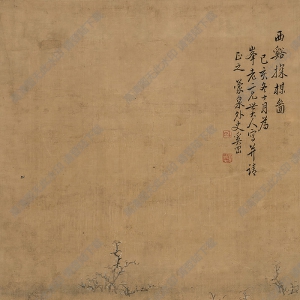 西谿探梅圖
己亥年十月為
峯老一兄大人寫並請
正之 蒙泉外史奚岡